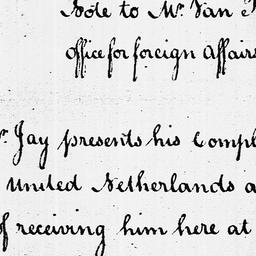 Note to Mr. Van
office for foreign Affairs
Jay presents his Compl
United Netherlands a
of receiving him here at